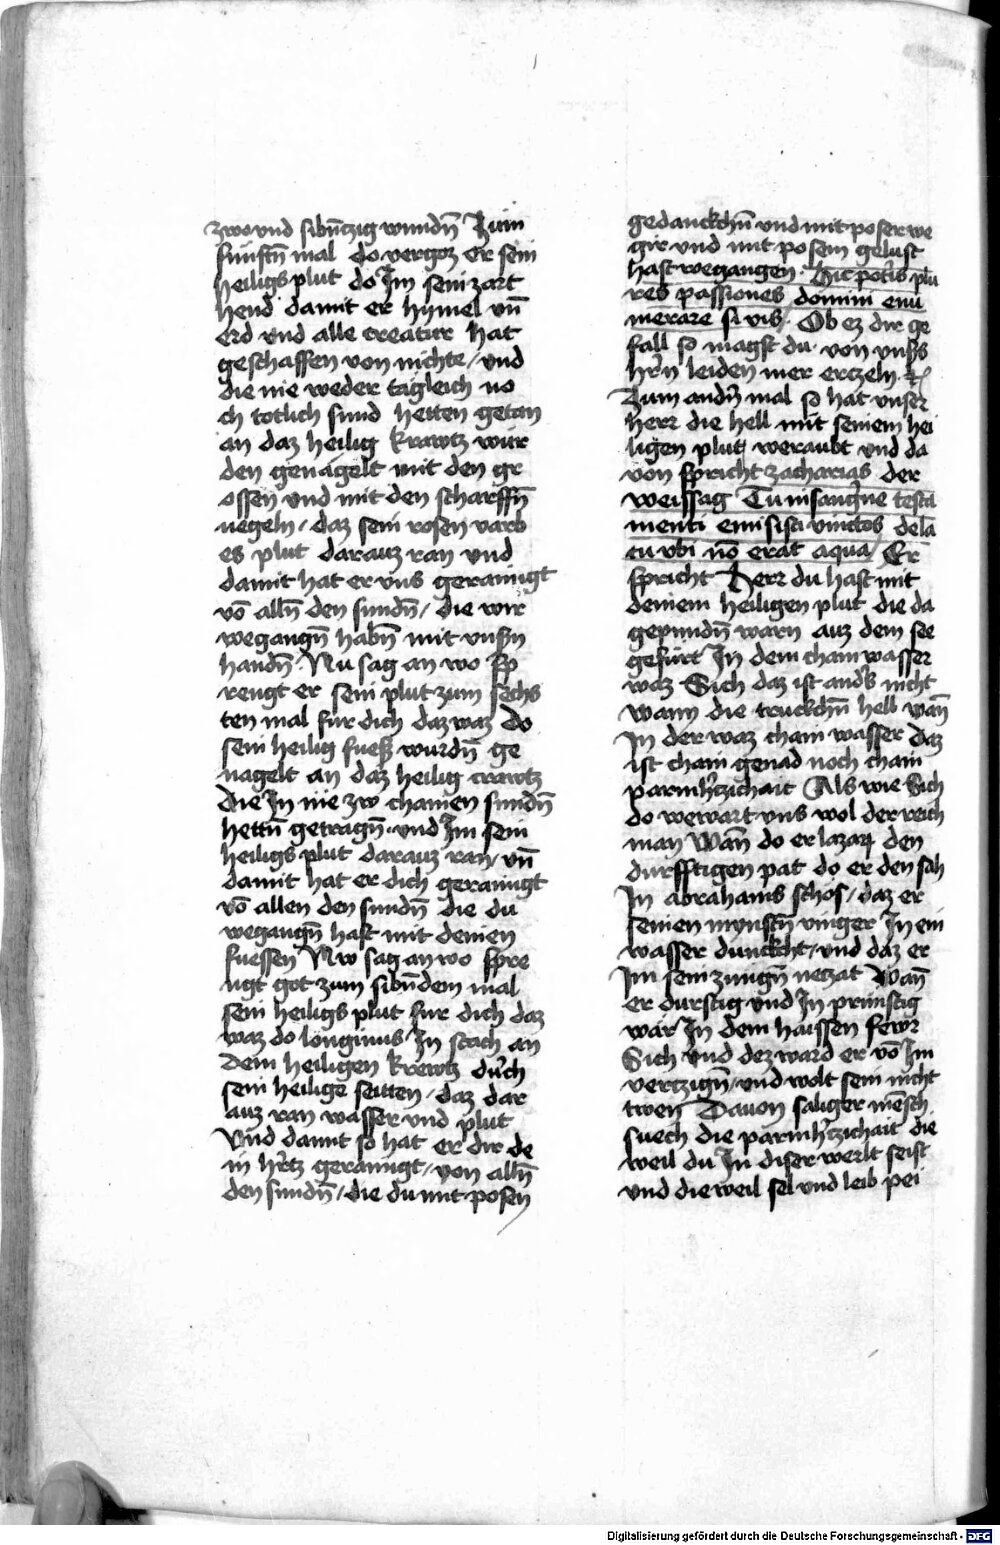 zwo vnd sibn̄czig wundn̄ Zum
funftn̄ mal do vergoz Er sein
heiligs plut do Im sein zart
hend damit er hymel vn̄
erd vnd alle creatur hat
geschaffen von nichte / vnd
die nie weder tägleich no
ch totlich sund hetten getan
an daz heilig krawtz wur
den genägelt mit den gr
ossen vnd mit den scharffn̄
negeln / daz sein rosen varb
es plut darauz ran vnd
damit hat er vns gerainigt
vō alln̄ den sundn̄ / die wir
wegangn̄ habn̄ mit vnsn̄
handn̄ Nu sag an wo sp
rengt er sein plut zum sechs
ten mal für dich daz waz do
sein heilig fuess wurdn̄ ge
nagelt an daz heilig crawtz
die In nie zw chainen sundn̄
hettn̄ getragn̄ vnd Im sein
heiligs plut darauz ran / vn̄
damit hat er dich gerainigt
vō allen den sundn̄ die du
wegangn̄ hast mit deinen
fuessen Nw sag an wo spre
ngt got zum sibn̄dem mal
sein heiligs plut fur dich daz
waz do longinus In stach an
dem heiligen krewtz durch
sein heilige seitten / daz dar
auz ran wasser vnd plut
Vnd damit so hat er dir de
in hr̄tz gerainigt / von alln̄
den sundn̄ / die du mit posen
gedanckchn̄ vnd mit poser we
gir vnd mit posem gelust
hast wegangen Hic potis plu
res passiones domini enu
merare si vis / Ob ez dir ge
fall so magst du von vnss
hr̄n leiden mer erczeln
Zum andn̄ mal so hat vnser
herr die hell mit seinem hei
ligen plut weraubt vnd da
von spricht zacharias der
weissag Tu in sangwne testa
menti emisisti vinctos de la
cu vbi nō erat aqua / Er
spricht Herr du hast mit
deinem heiligen plut die da
gepundn̄ warn auz dem see
gefürt In dem chain wasser
waz Sich daz ist anders nicht
wann die truckchn̄ hell wan̄
In der waz chain wasser daz
ist chain genad noch chain
parmhr̄czichait Als wie sich
do wewart vns wol der reich
man Wan̄ do er lazarum den
durfftigen pat do er den sah
In abrahams schos / daz er
seinen mynstn̄ vinger In ein
wasser dunckcht / vnd daz er
Im sein zungn̄ neczat Wan̄
er durstig vnd In prunstig
wär In dem haissen fewr
Sich vnd dez ward er vō Im
verczign̄ / vnd wolt sein nicht
twen Dauon säliger mēsch
suech die parmhr̄czichait die
weil du In diser werlt seist
vnd die weil sel vnd leib pei
Digitalisierung gefördert durch die Deutsche Forschungsgemeinschaft - DFG